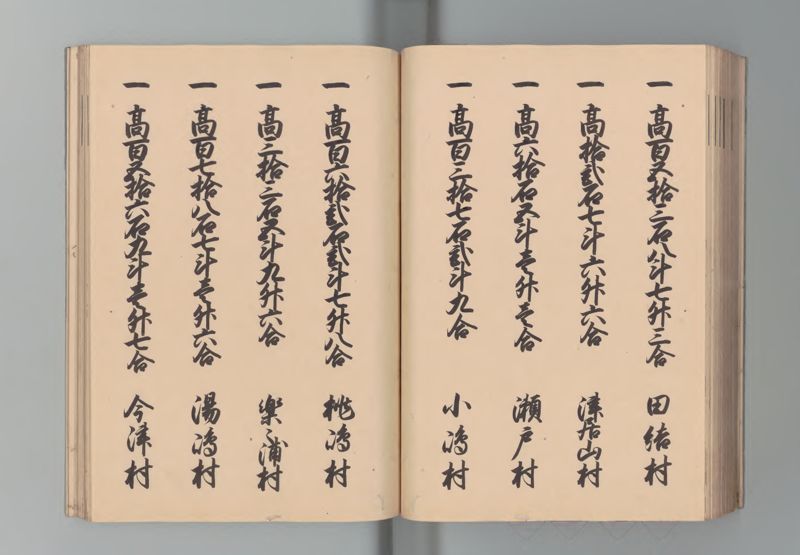 一高百五拾三石八斗七升三合 田結村
一高拾弐石七斗六升六合 津居山村
一高六拾石五斗壱升壱合 瀬戸村
一高百三拾七石弐斗九合 小嶋村
一高百六拾弐石弐斗七升八合 桃嶋村
一高三拾三石五斗九升六合 楽々浦村
一高百七拾八石七斗壱升六合 湯嶋村
一高百五拾六石九斗壱升七合 今津村